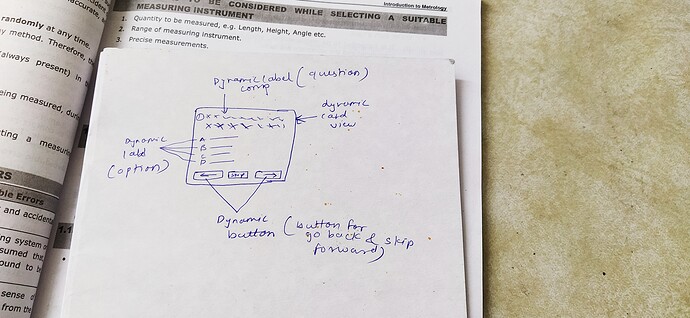 Introduction to Metrology
TO BE CONSIDERED WHILE SELECTING A SUITABLE
MEASURING INSTRUMENT
1. Quantity to be measured, e.g. Length, Height, Angle etc.
2. Range of measuring instrument.
3. Precise measurements.
randomly at any time.
y method. Therefore, the
(always present) in
eing measured,
cting a measuring
RS
ble Errors
and accidental
ng system
sumed that
ound to be
sense of
from the
1.1
Dynamic label (question)
comp
dynamic
card
view
Dynamic
label
(option)
A
B
C
D
←
skip
→
Dynamic
button
(button for
go back & skip
forward)